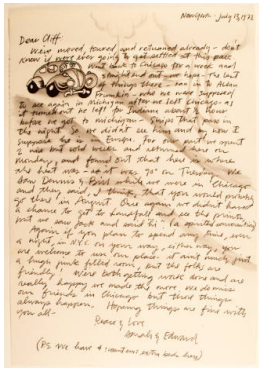 New York - July 13, 1972
Dear Cliff
We've moved, toured, and returned already - don't
know if we're ever going to get settled at this pace.
went back to Chicago for a week and
straightened out - we hope - the last
of things there - ran in to Allen
Frumkin - who we were supposed
to see again in Michigan after we left Chicago - as
it turned out he left for Indiana about ½ hour
before we got to Michigan - ships that pass in
the night. So we didn't see him and by now I
suppose he is in Europe. For our part we spent
a nice but cold week and returned here on
Monday, and found out that here is where
the heat was - as it was 90° on Tuesday. We
saw Dennis & Bill while we were in Chicago
and they said, I think, that you would probably
go there in August. Once again we didn't have
a chance to get to Landfall and see the prints,
but we saw Jack and said hi.
Again if you plan to spend any time, even
a night, in N.Y.C. on your way, either way, you
are welcome to use our place, it ain't much, just
a big junk filled room, but the folks are
friendly. We're both getting work done and are
really happy we made the move. We do miss
our friends in Chicago but those things
always happen. Hoping things are fine with
you all -
Peace & Love
Sarah & Edward
(P.S. We have